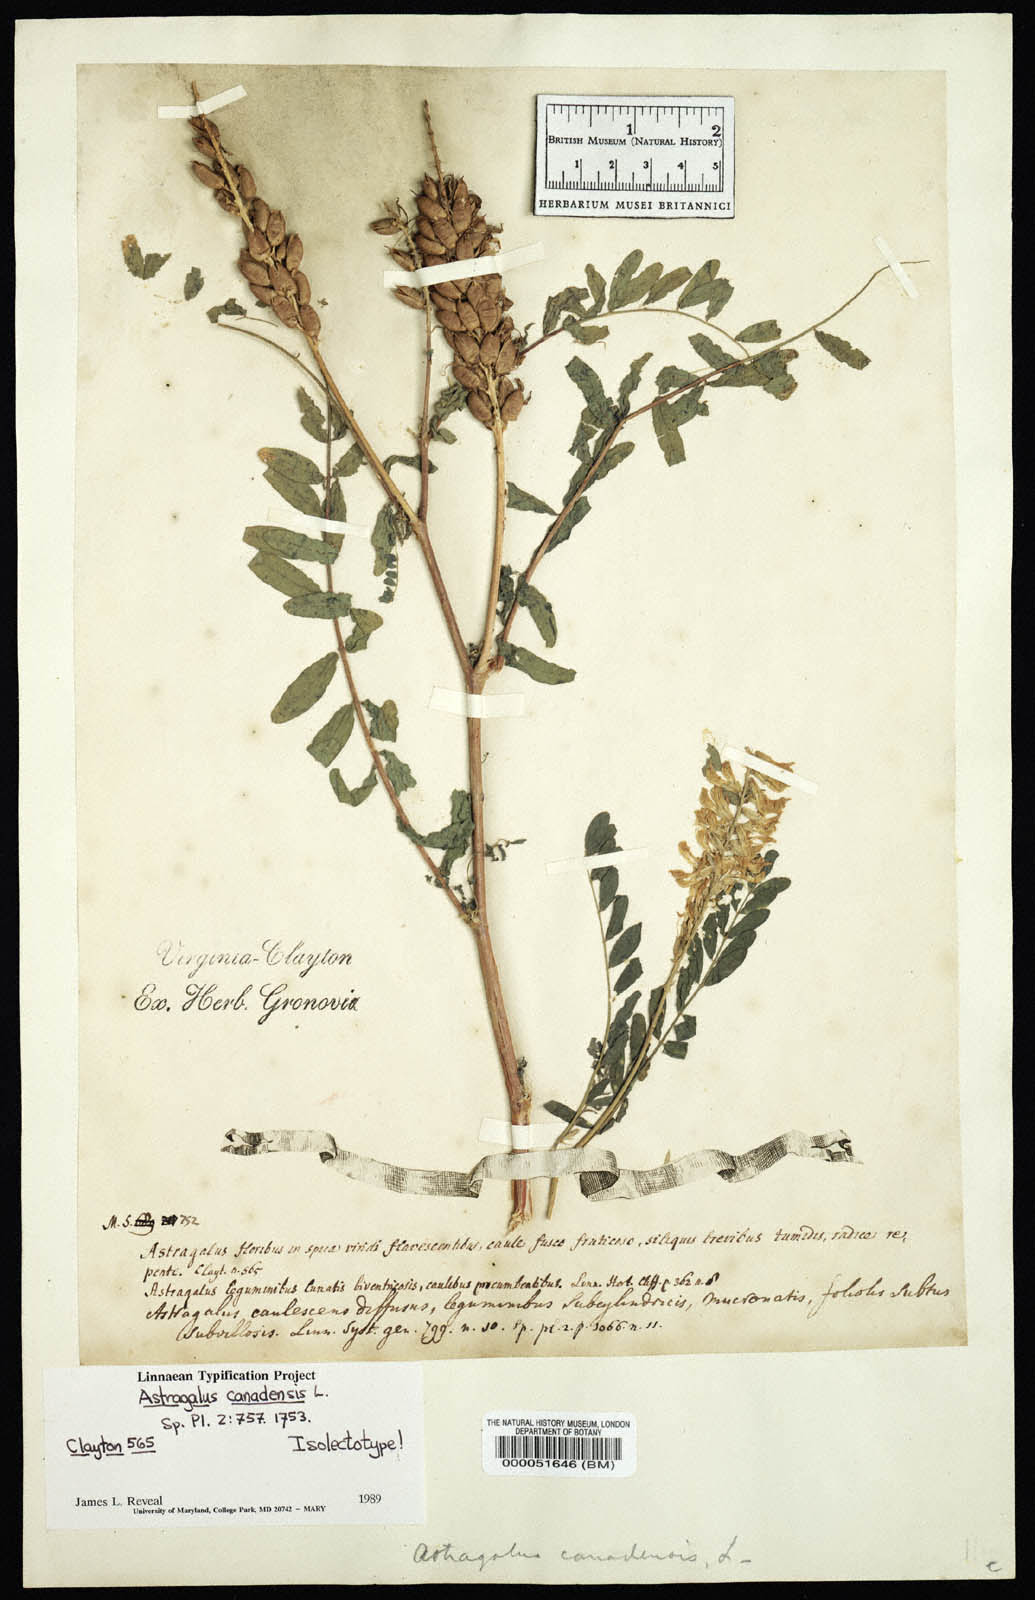 1 2
British Museum (Natural History)
1 2 3 4 5
HERBARIUM MUSEI BRITANNICI
Virginia-Clayton
Ex. Herb. Gronovii
M. S. 752
Astragalus floribus in spica viridi flavescentibus, caule fusco fruticoso, siliquis brevibus tumidis, radice re,
pente. Clayt. n. 565
Astragalus leguminibus lunatis biventricosis, caulibus procumbentibus. Linn. Hort. Cliff. p. 362. n. 8
Astragalus caulescens diffusus, leguminibus subcylindricis, mucronatis, foliolis subtus
subvillosis. Linn. Syst. gen. 799. n. 10. Sp. pl. 2. p. 1066. n. 11.
Linnaean Typification Project
Astragalus canadensis L.
Sp. Pl. 2:757. 1753.
Clayton 565 Isolectotype!
James L. Reveal 1989
University of Maryland, College Park, MD 20742 – MARY
THE NATURAL HISTORY MUSEUM, LONDON
DEPARTMENT OF BOTANY
000051646 (BM)
Astragalus canadensis, L-
c